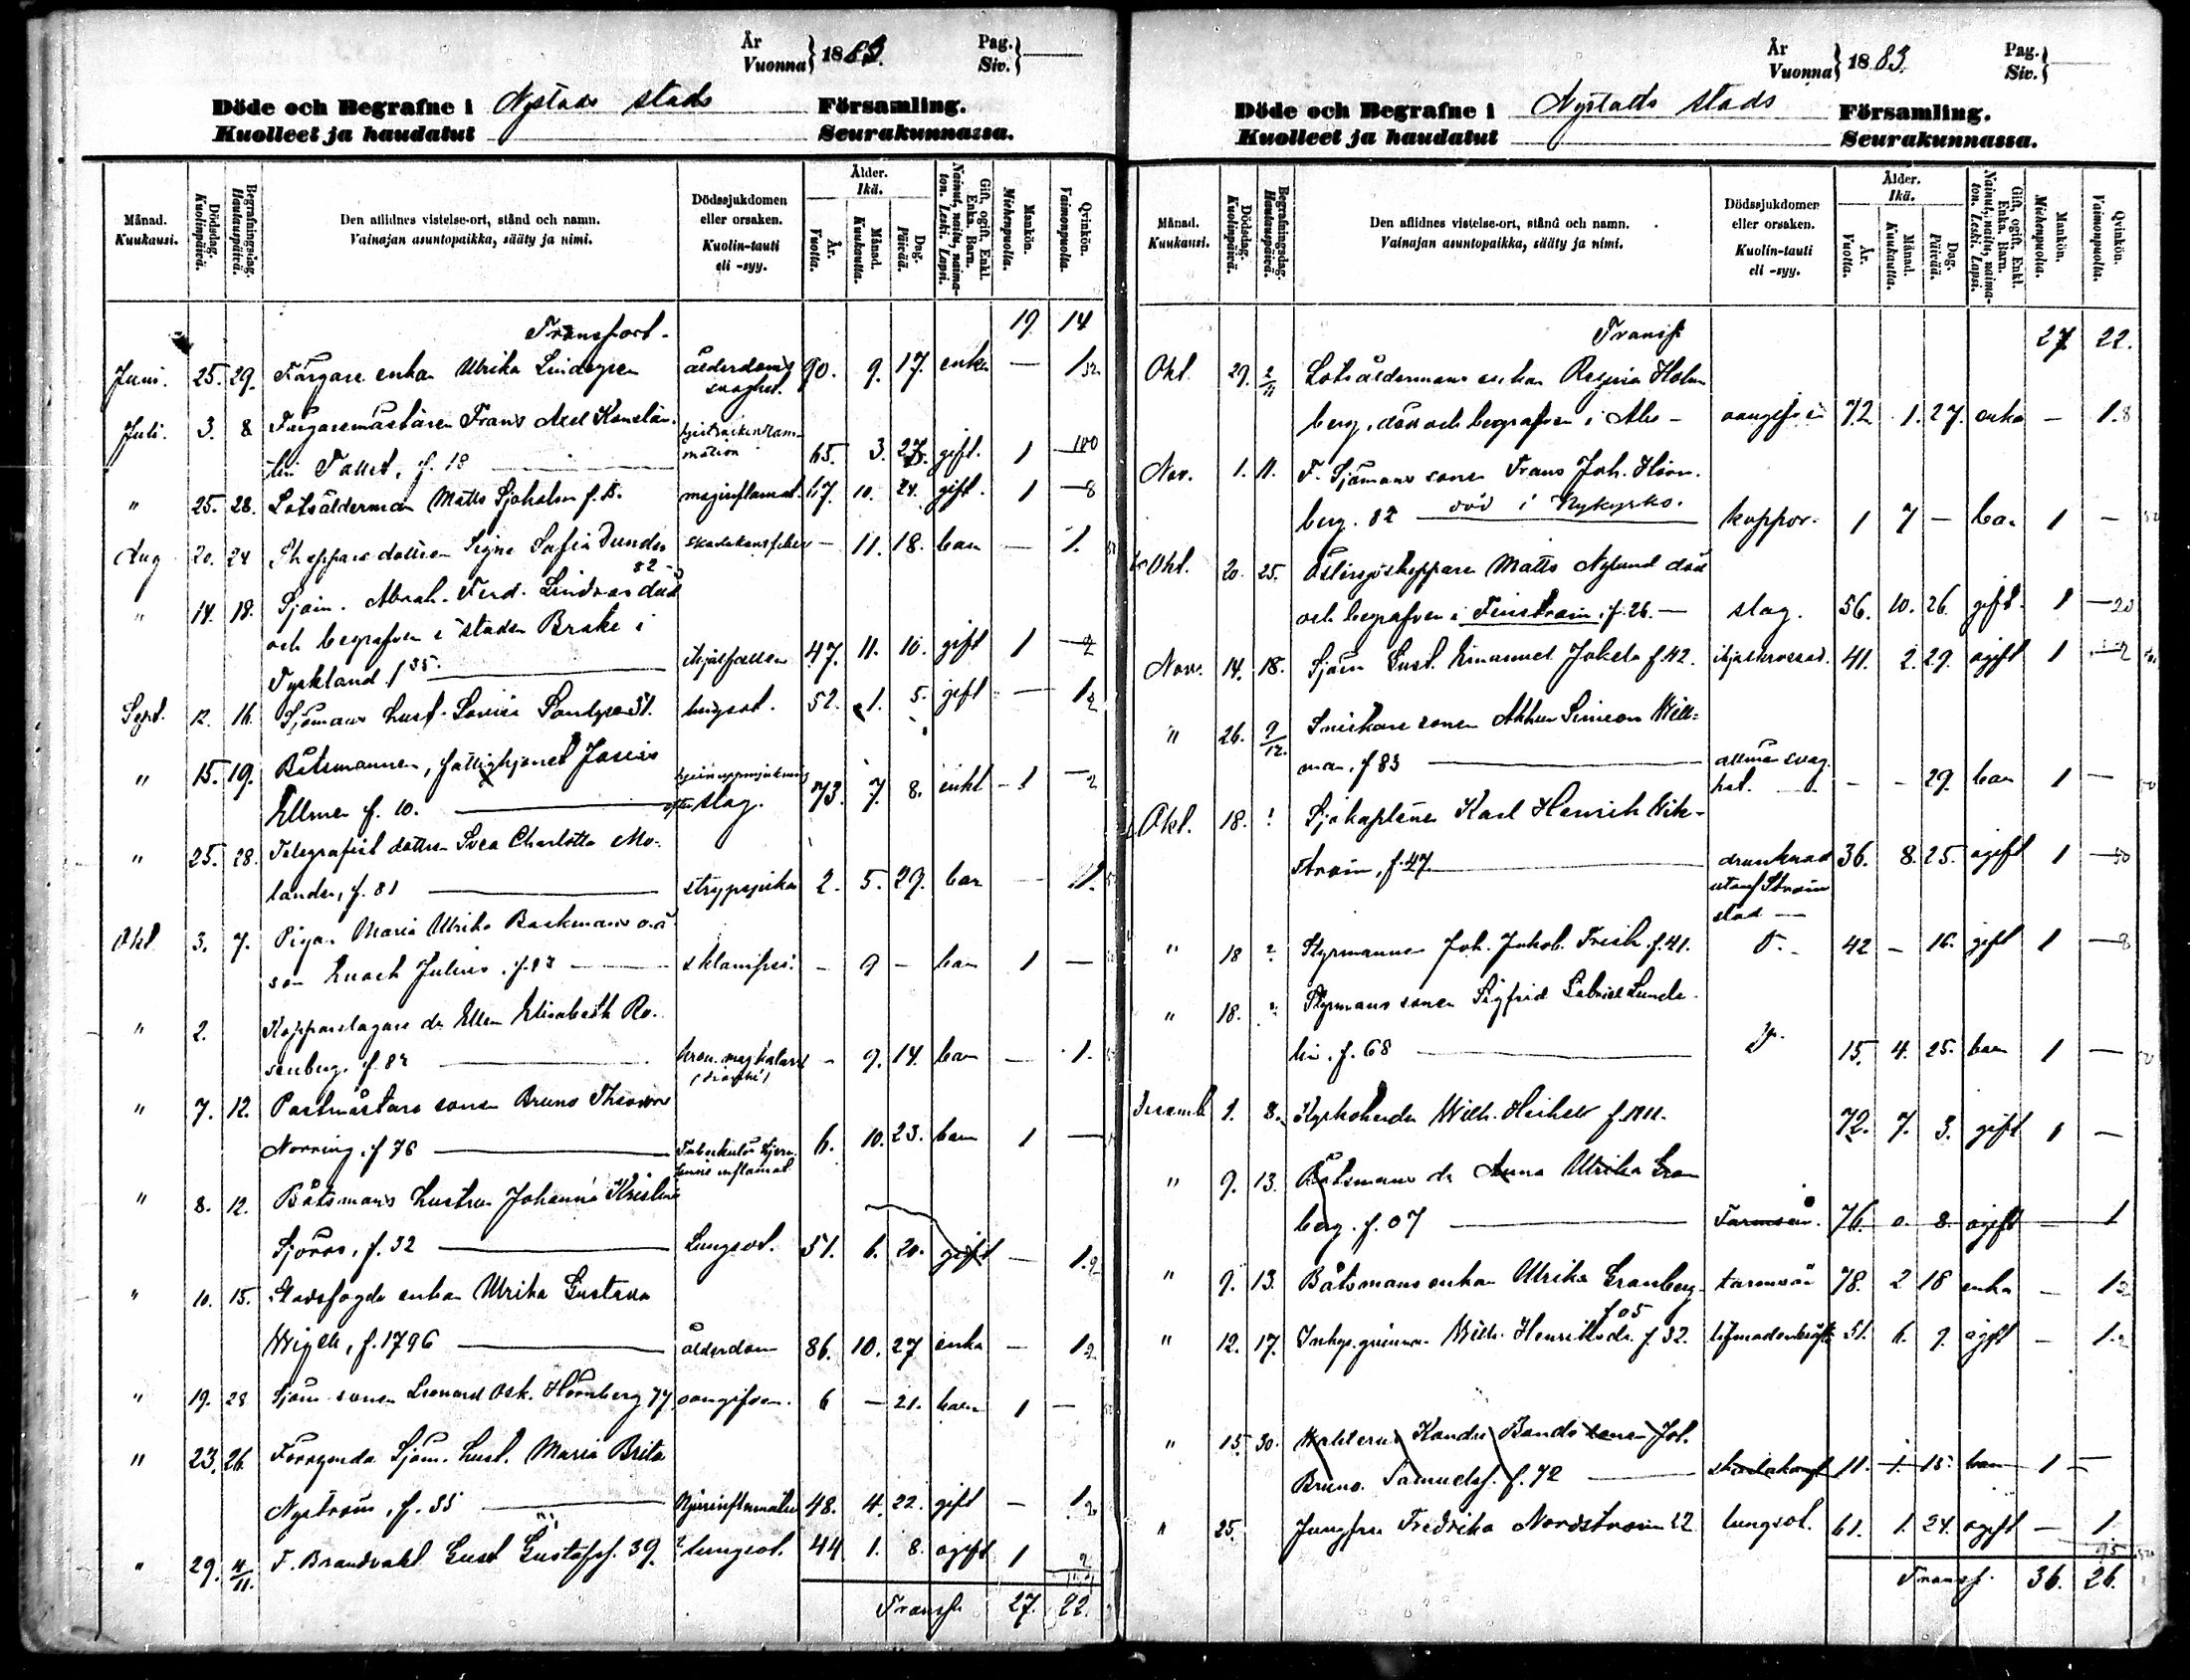 År
Vuonna } 1883. Pag. Siv. }
Döde och Begrafne i Nystads stads Församling.
Kuolleet ja haudatut Seurakunnassa.
Månad. Kuukausi.
Dödsdag. Kuolinpäivä.
Begrafningsdag. Hautauspäivä.
Den aflidnes vistelse-ort, stånd och namn.
Vainajan asuntopaikka, sääty ja nimi.
Dödssjukdomen eller orsaken.
Kuolin-tauti eli -syy.
Ålder. Ikä.
År. Vuotta.
Månad. Kuukautta.
Dag. Päivää.
Gift, ogift, Enkl. Enka. Barn. Nainut, naitu, naimaton. Leski. Lapsi.
Mankön. Miehenpuolia.
Qvinkön. Vaimonpuolia.
Transport. 19 14
Juni. 25. 29. Färgare enkan Ulrika Lindgren ålderdoms svaghet. 90. 9. 17. enka — 1
Juli. 3. 8 Färgaremästaren Frans Axel
Tallet, f. 18 65. 3. gift. 1
" 25. 28. Lotsålderman Matts Sjöholm maginflamat. 67. 10. 24. gift. 1
Aug 20. 24 Skeppare dottren Signe Sofia Dunder 82 — 11. 18. barn — 1.
" 14. 18. Sjöm. Abrah. Ferd. Lindroos död
och begrafven i staden Brake i
Tyskland f 35. ihjälfallen 47. 11. 10. gift 1
Sept. 12. 16. Sjömans hust. Lovisa Sandgren 31. lungsot. 52. 1. 5. gift — 1
" 15. 19. Båtsmannen, fattighjonet Josias
Ellmen f. 10. slag. 73. 7. 8. enkl 1
" 25. 28. Telegrafist dottren Svea Charlotta Mo-
lander, f. 81 strypsjuka 2. 5. 29. bar — 1.
Okt 3. 7. Pigan Maria Ulrika Backmans o.ä.
son Enoch Julius, f. 83 eklampsi. — 9 — barn 1 —
" 2. Kopparslagare dr Ellen Elisabeth Ro-
senberg. f. 82 kron. magkatarr — 9. 14. barn — 1.
" 7. 12. Postmästare sonen Bruno Theodor
Norring. f 76 Tuberkulös hjern-
hinne inflamat. 6. 10. 23. barn 1 —
" 8. 12. Båtsmans hustrun Johanna Kristina
Sjöroos, f. 32 Lungsot. 51. 6. 20. gift — 1.
" 10. 15. Stadsfogde enkan Ulrika Gustava
Wigell, f. 1796 ålderdom 86. 10. 27 enka — 1
" 19. 28 Sjöm sonen Leonard Osk. Hörnberg 77 oangifven. 6 — 21. barn 1 —
" 23. 26. Försvunda Sjöm. hust. Maria Brita
Nyström, f. 35 48. 4. 22. gift — 1
" 29. 4/11. F. Brandvakt Gust Gustafss. 39. lungsot. 44 1. 8. ogift 1
Transp. 27. 22.
År
Vuonna } 1883. Pag. Siv. }
Döde och Begrafne i Nystads stads Församling.
Kuolleet ja haudatut Seurakunnassa.
Månad. Kuukausi.
Dödsdag. Kuolinpäivä.
Begrafningsdag. Hautauspäivä.
Den aflidnes vistelse-ort, stånd och namn.
Vainajan asuntopaikka, sääty ja nimi.
Dödssjukdomen eller orsaken.
Kuolin-tauti eli -syy.
Ålder. Ikä.
År. Vuotta.
Månad. Kuukautta.
Dag. Päivää.
Gift, ogift, Enkl. Enka. Barn. Nainut, naitu, naimaton. Leski. Lapsi.
Mankön. Miehenpuolia.
Qvinkön. Vaimonpuolia.
Transp 27 22.
Okt. 29. 2/11 Lotsåldermans enkan Regina Holm
berg, död och begrafven i Åbo — oangifven 72. 1. 27. enka — 1.
Nov. 1. 11. F. Sjömans sonen Frans Joh. Hörn.
berg. 82 död i Nykyrko. koppor. 1 7 — barn 1 —
Okt. 20. 25. Östersjöskepparen Matts Nylund död
och begrafven i f. 26. — slag. 56. 10. 26. gift. 1
Nov. 14. 18. Sjöm Gust. Emanuel Jokela f. 42. ihjelkrossad. 41. 2. 29. ogift 1
" 26. 9/12. Snickare sonen Arthur Simeon Will-
man, f 83 allmän svag
het. — — 29. barn 1 —
Okt. 18. ? Sjökaptenen Karl Henrik Wik-
ström, f. 47. drunknad 36. 8. 25. ogift 1
utanf Ström
stad —
" 18 ? Styrmannen Joh. Jakob. Frisk. f. 41. 42 — 16. gift 1
" 18. ? Styrmans sonen Sigfrid Gabriel Lunde-
lin. f. 68 15. 4. 25. barn 1 —
Decemb 1. 8. Kyrkoherden Wilh. Heikel f. 1811. 72. 7. 3. gift 1 —
" 9. 13. Båtsmans dr Anna Ulrika Gran
berg. f. 07 Tarmvån. 76. 8. ogift — 1
" 9. 13. Båtsmans enkan Ulrika Granberg f 05 tarmvån 78. 2 18 enka — 1
" 12. 17. Inhys. qvinnan Wilh. Henriksdr. f. 32. 51. 6. 9. ogift — 1.
" 15. 30. Bonds sonen Joh.
Bruno Samuelss. f. 72 skarlakansf 11. 1. 15. barn 1 —
" 25. Jungfru Fredrika Nordström 22 lungsot. 61. 1. 24. ogift — 1.
Transp. 36. 26.